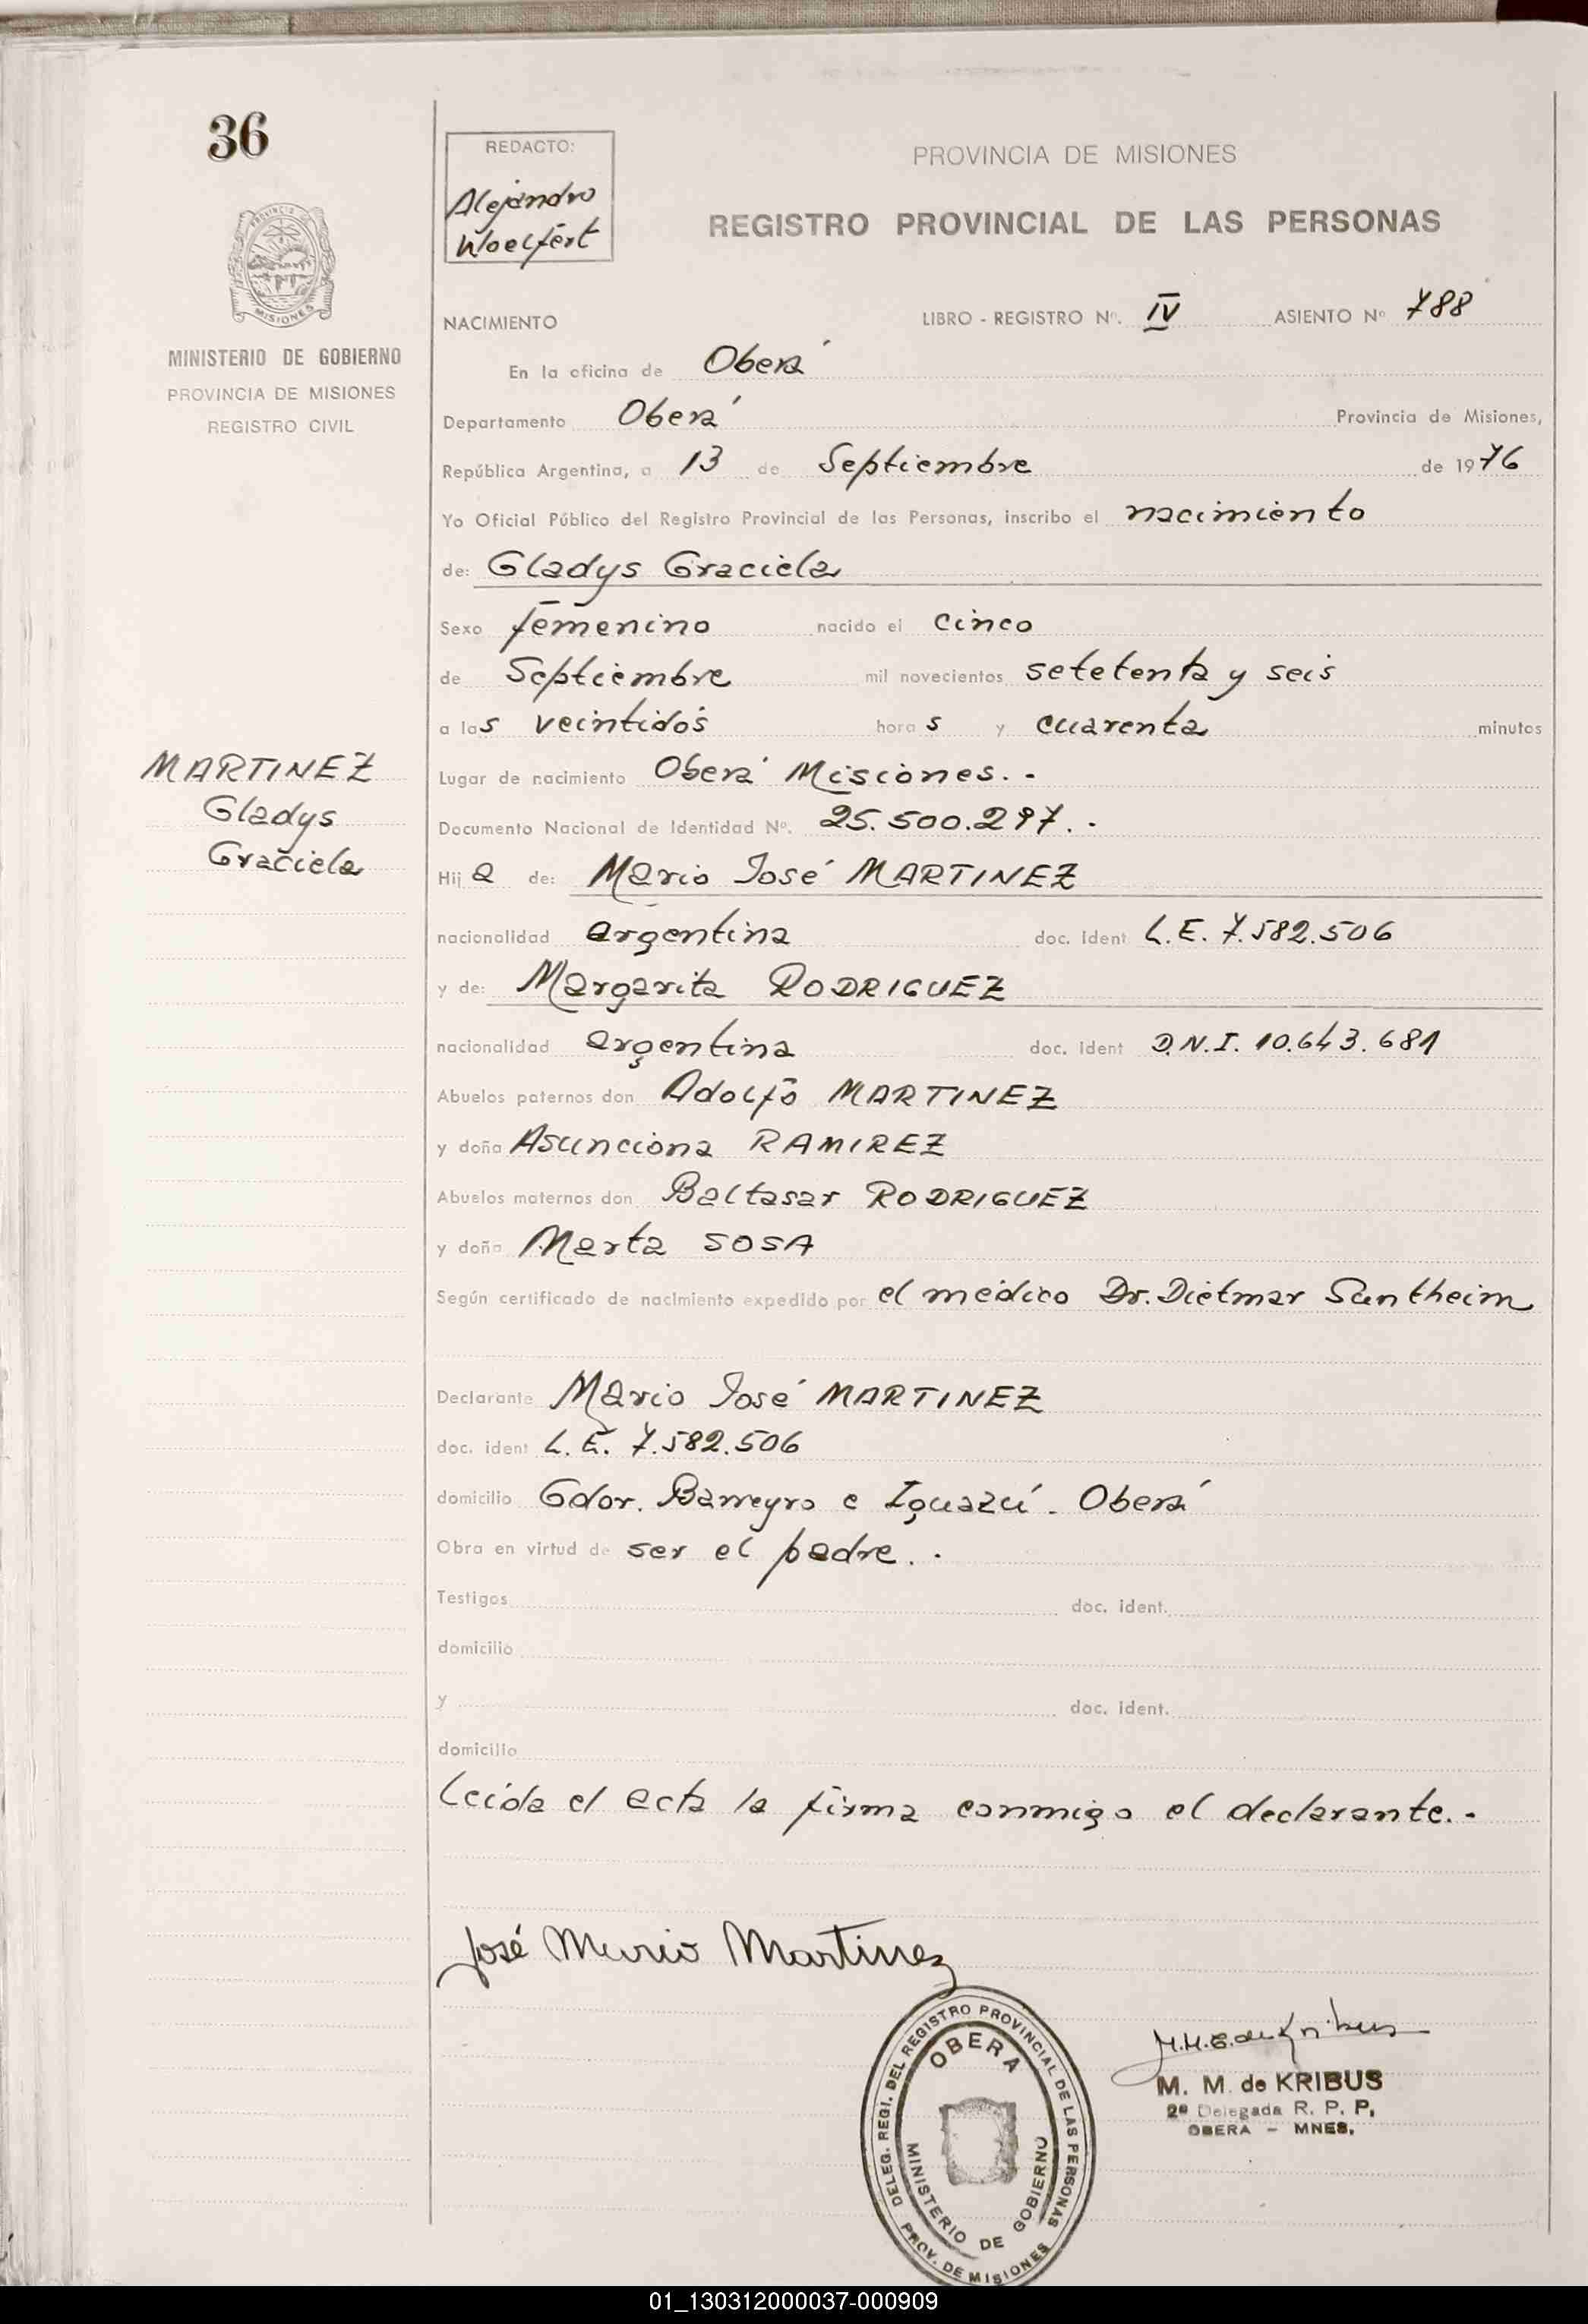 36
PROVINCIA DE MISIONES
MINISTERIO DE GOBIERNO
PROVINCIA DE MISIONES
REGISTRO CIVIL
MARTINEZ
Gladys
Graciela
REDACTO:
Alejandro
Woelfert
PROVINCIA DE MISIONES
REGISTRO PROVINCIAL DE LAS PERSONAS
NACIMIENTO LIBRO - REGISTRO Nº. IV ASIENTO Nº 788
En la oficina de Oberá
Departamento Oberá Provincia de Misiones,
República Argentina, a 13 de Septiembre de 1976
Yo Oficial Público del Registro Provincial de las Personas, inscribo el nacimiento
de: Gladys Graciela
Sexo femenino nacido el cinco
de Septiembre mil novecientos setetenta y seis
a las veintidós horas y cuarenta minutos
Lugar de nacimiento Oberá Misiones.-
Documento Nacional de Identidad Nº. 25.500.297.-
Hija de: Mario José MARTINEZ
nacionalidad argentina doc. ident L.E. 7.582.506
y de: Margarita RODRIGUEZ
nacionalidad argentina doc. ident D.N.I. 10.643.681
Abuelos paternos don Adolfo MARTINEZ
y doña Asunciona RAMIREZ
Abuelos maternos don Baltasar RODRIGUEZ
y doña Marta SOSA
Según certificado de nacimiento expedido por el médico Dr. Dietmar Suntheim
Declarante Mario José MARTINEZ
doc. ident L.E. 7.582.506
domicilio Gdor. Barreyro e Iguazú - Oberá
Obra en virtud de ser el padre.-
Testigos doc. ident.
domicilio
y doc. ident.
domicilio
Leída el acta la firma conmigo el declarante.-
José Mario Martinez
DELEG. REGI. DEL REGISTRO PROVINCIAL DE LAS PERSONAS
OBERA
MINISTERIO DE GOBIERNO
PROV. DE MISIONES
M. M. de KRIBUS
2ª Delegada R. P. P.
OBERA - MNES.
01_130312000037-000909